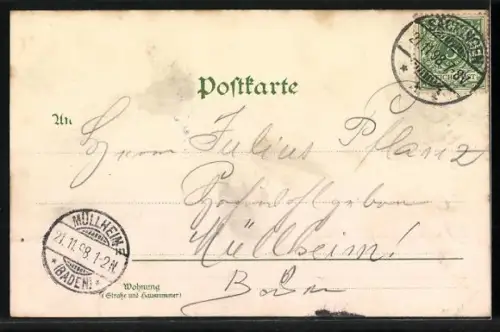 SÄCKINGEN
21.11.98. 7-8V.
Postkarte
An
Herrn Julius Pflanz
Müllheim!
Baden
MÜLLHEIM
21.11.98. 1-2N.
* (BADEN) *
Wohnung
(Straße und Hausnummer)